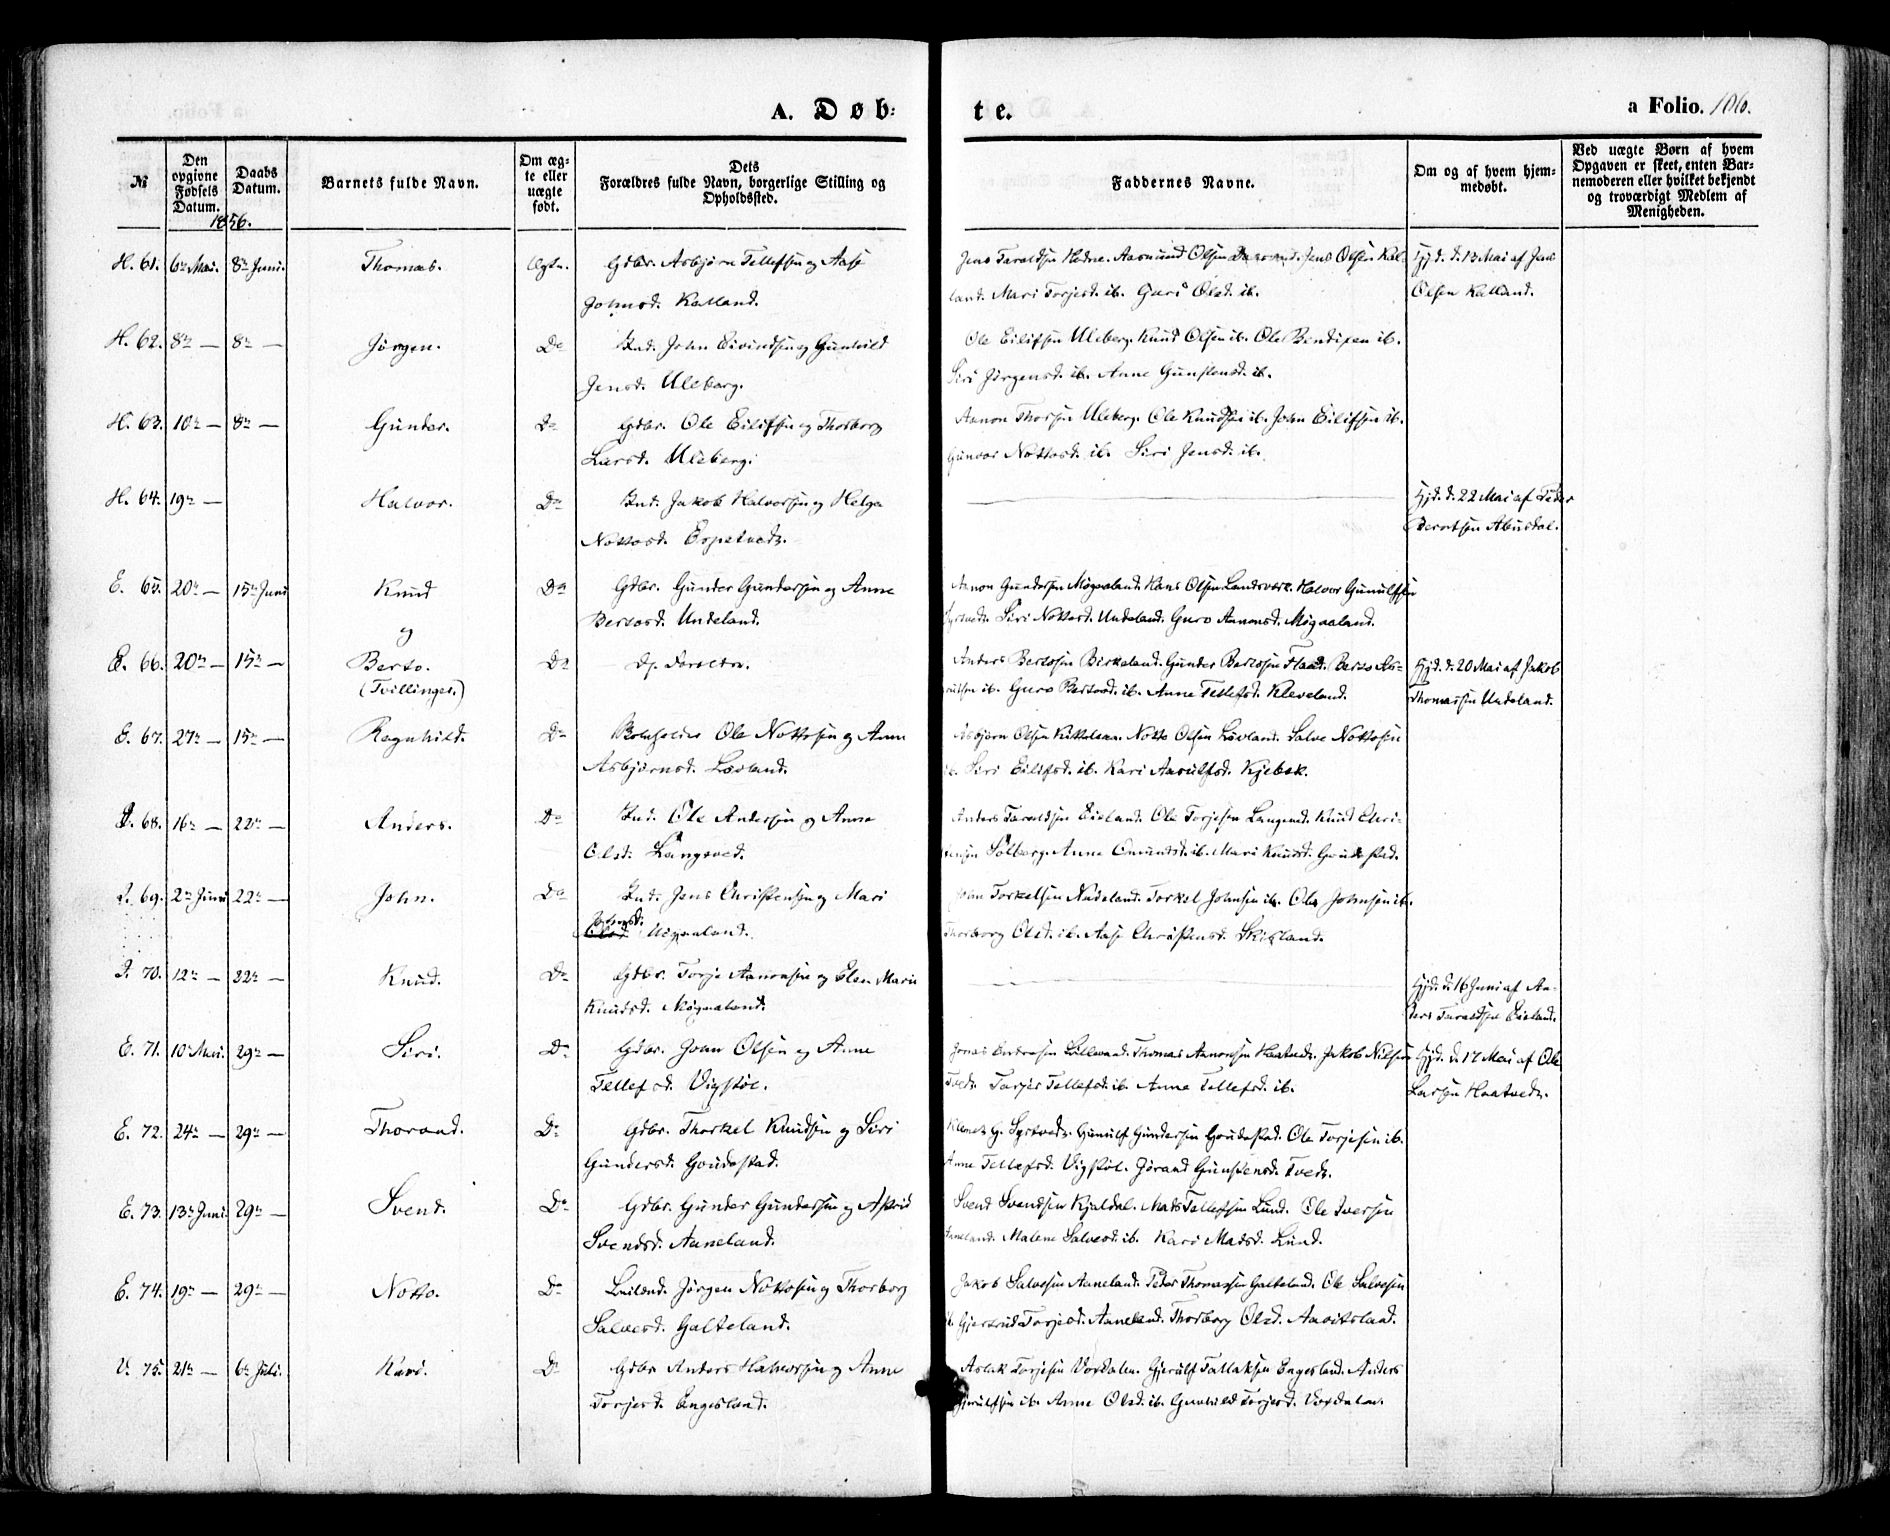 A. Døb:
te.
a Folio. 106.
№
Den opgivne Fødsels Datum.
Daabs Datum.
Barnets fulde Navn.
Om ægte eller uægte født.
Dets Forældres fulde Navn, borgerlige Stilling og Opholdssted.
Faddernes Navne.
Om og af hvem hjemmedøbt.
Ved uægte Børn af hvem Opgaven er skeet, enten Barnemoderen eller hvilket bekjendt og troværdigt Medlem af Menigheden.
1856.
H. 61. 6te Mai. 8de Juni. Thomas. Ægte. Gdbr. Asbjørn Tellefsen og Aase
Johnsd. Kalland.
Jens Taraldsen Hodne. Aasmund Olsen Jens Olsen Kal-
land. Mari Torjesd. ib. Guri Olsd. ib.
Hjd. d. 13 Mai af Jens
Olsen Kalland.
H. 62. 8de — 8de — Jørgen. Do Ind. John Eivindsen og Gunhild
Jensd. Uleberg.
Ole Eilifsen Uleberg. Knud Olsen ib. Ole Bendixen ib.
Siri Jørgensd. ib. Anne Gunstensd. ib.
H. 63. 10de — 8de — Gunder. Do Gdbr. Ole Eilifsen og Thorborg
Larsd. Uleberg.
Aanon Thorsen Uleberg. Ole Knudsen ib. John Eilifsen ib.
Gunvor Nottosd. ib. Siri Jensd. ib.
H. 64. 19de — Halvor. Do Ind. Jakob Halvorsen og Helga
Nottosd. Espetvedt.
Hjd. d. 22 Mai af Peder
Berntsen Abusdal.
E. 65. 20de — 15de Juni Knud Do Gdbr. Gunder Gundersen og Anne
Bertosd. Undeland.
Aanon Gundersen Møgaaland. Hans Olsen Landsverk. Halvor Gunulfsen
Syrtvedt. Siri Nottosd. Undeland. Guro Aanonsd. Møgaaland.
og
E. 66. 20de — 15de — Berto. Do D. Foreldre.
(Tvillinger.)
Anders Bertosen Birkeland. Gunder Bertosen Flaad. Berto
ib. Guro Bertosd. ib. Anne Tellefsd. Kleveland.
Hjd. d. 20 Mai af Jakob
Thomassen Undeland.
E. 67. 27de — 15de — Ragnhild. Do Ole Nottosen og Anne
Asbjørnsd. Løvland.
Asbjørn Olsen Kittelsaa. Notto Olsen Løvland. Salve Nottosen
ib. Siri Eilifsd. ib. Kari Aanulfsd. Kjebek.
68. 16de — 22de — Anders. Do Ind. Ole Andersen og Anne
Olsd. Langeved.
Anders Taraldsen Eieland. Ole Torjesen Langeved. Knud Chri-
stensen Solberg. Anne Omundsd. ib. Mari Knudsd. Goudestad.
69. 2den Juni 22de — John. Do Ind. Jens Christensen og Mari
Johnsd.
Olsd. Uigaaland.
John Torkelsen Nudeland. Torkel Johnsen ib. Ole Johnsen ib.
Thorborg Olsd. ib. Aase Christensd. Skisland.
70. 12te — 22de — Knud. Do Gdbr. Torje Aanonsen og Elen Marie
Knudsd. Møgaaland.
Hjd. d. 16 Juni af An-
ders Taraldsen Eieland.
E. 71. 10de Mai. 29de — Siri. Do Gdbr. John Olsen og Anne
Tellefsd. Vigstøl.
Jonas Andersen Lillevand. Thomas Aanonsen Haatvedt. Jakob Nilsen
Tvedt. Torjer Tellefsd. ib. Anne Tellefsd. ib.
Hjd. d. 17 Mai af Ole
Larsen Haatvedt.
E. 72. 24de — 29de — Thorand. Do Gdbr. Thorkel Knudsen og Siri
Gundersd. Goudestad.
Klemet G. Syrtvedt. Gunulf Gundersen Goudestad. Ole Torjesen ib.
Anne Tellefsd. Vigstøl. Jørand Gunstensd. Tvedt.
E. 73. 13de Juni. 29de — Svend. Do Gdbr. Gunder Gundersen og Astrid
Svendsd. Aaneland.
Svend Svendsen Kjeldal. Mads Tellefsen Lund. Ole Iversen
Aaneland. Malene Salvesd. ib. Kari Madsd. Lund.
E. 74. 19de — 29de — Notto. Do Leilænd. Jørgen Nottosen og Thorborg
Salvesd. Galteland.
Jakob Salvesen Aaneland. Peder Thomassen Galteland. Ole Salvesen
ib. Gjertrud Torjesd. Aaneland. Thorborg Olsd. Aavitsland.
V. 75. 21de — 6te Juli. Kari. Do Gdbr. Anders Halvorsen og Anne
Torjesd. Engesland.
Aslak Torjesen Vordalen. Gjerulf Tallaksen Engesland. Anders
Gjerulfsen ib. Anne Olsd. ib. Gunhild Torjesd. Vordalen.